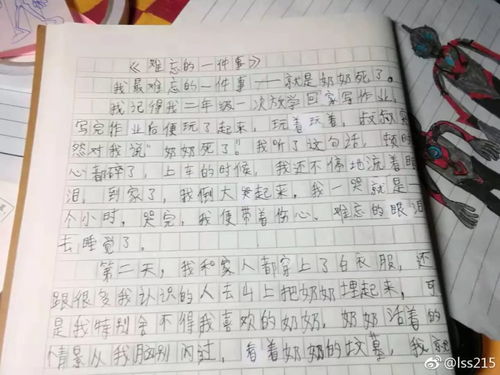 《难忘的一件事》
我最难忘的一件事——就是奶奶死了。
我记得我二年级一次放学回家写作业，
写完作业后便玩了起来，玩着玩着，叔叔突
然对我说"奶奶死了"。我听了这句话，顿时
心都碎了，上车的时候，我还不停地流着眼
泪，到家了，我倒大哭起来，我一哭就是一
个小时，哭完，我便带着伤心、难忘的眼泪
去睡觉了。
第二天，我和家人都穿上了白衣服，还
跟很多我认识的人去山上把奶奶埋起来，可
是我特别舍不得我喜欢的奶奶，奶奶活着的
情景从我脑别闪过，看着奶奶的坟墓，我
@lss215